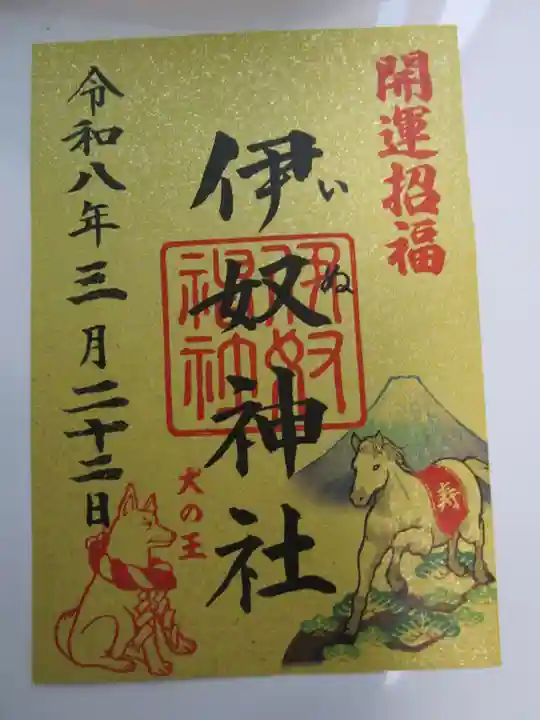 開運招福
伊奴神社
いぬ
伊奴神社
犬の王
寿
令和八年三月二十二日